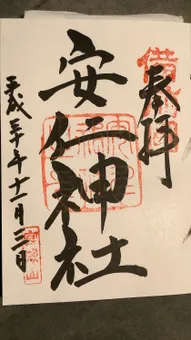 奉拝
安仁神社
平成三十年十一月三日